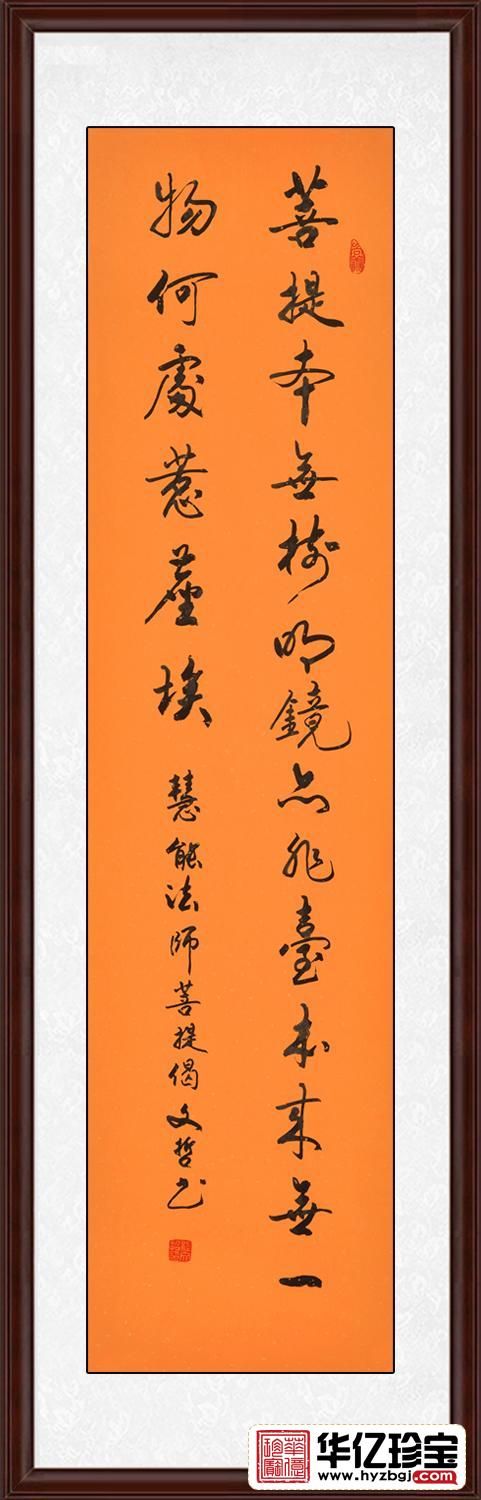 菩提本無樹明鏡亦非臺本来無一
物何處惹塵埃 慧能法師菩提偈 文哲书
华亿珍宝
www.hyzbgj.com